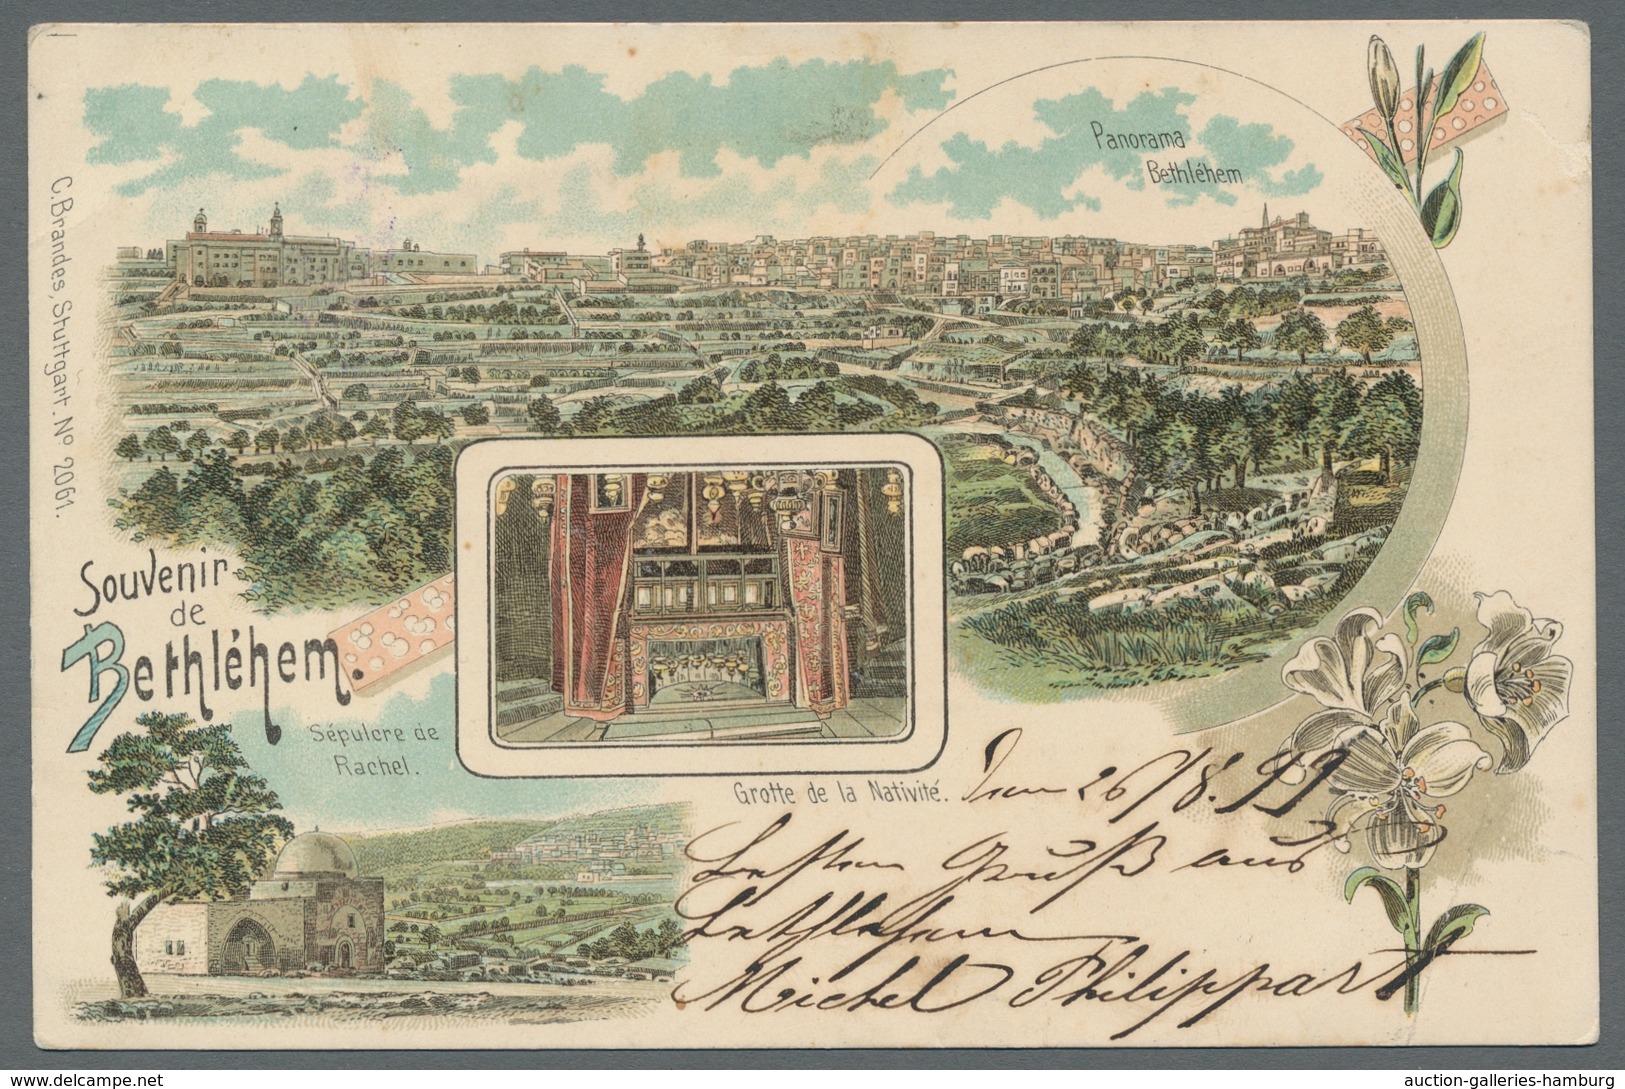 Panorama
Bethléhem
C. Brandes, Stuttgart. Nº 2061.
Souvenir
de
Bethléhem.
Sépulcre de
Rachel.
Grotte de la Nativité.
Den 26/8. 99
Besten Gruß aus
Bethlehem
Michel Philippart
delcampe.net
auction-galleries-hamburg